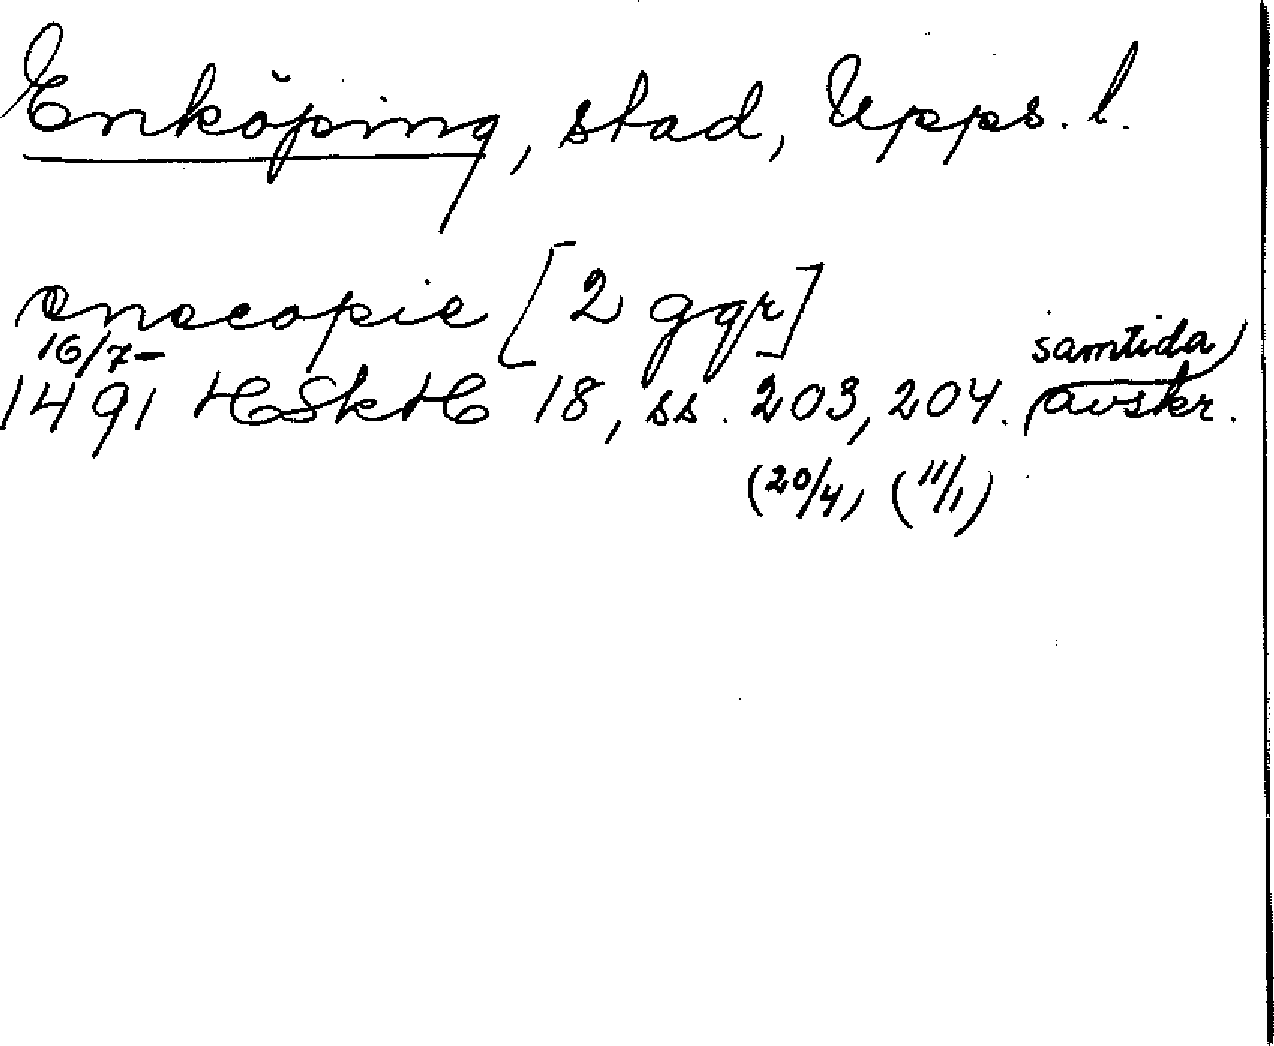 Enköping, stad, Upps. l.
enecopie [2 ggr]
16/7-
1491 HSkH 18, ss. 203, 204. samtida avskr.
(20/4, (11/1)